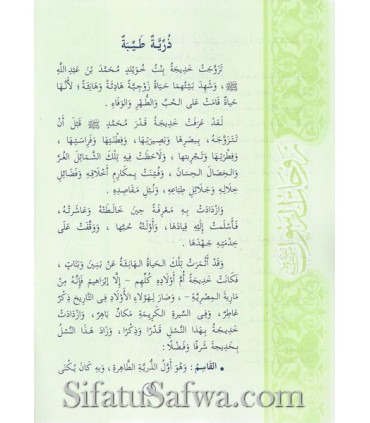 ذُرِّيَّةٌ طَيِّبَةٌ
تَزَوَّجَتْ خَدِيجَةُ بِنْتُ خُوَيْلِدٍ مُحَمَّدَ بْنَ عَبْدِ اللَّهِ
ﷺ، وَشَهِدَ بَيْتُهُمَا حَيَاةً زَوْجِيَّةً هَادِئَةً وَهَانِئَةً؛ لِأَنَّهَا
حَيَاةٌ قَامَتْ عَلَى الْحُبِّ وَالطُّهْرِ وَالْوَفَاءِ.
لَقَدْ عَرَفَتْ خَدِيجَةُ قَدْرَ مُحَمَّدٍ ﷺ قَبْلَ أَنْ
تَتَزَوَّجَهُ، بِبَصَرِهَا وَبَصِيرَتِهَا، وَفِطْنَتِهَا وَفِرَاسَتِهَا،
وَفِطْرَتِهَا وَتَجْرِبَتِهَا، وَلَاحَظَتْ فِيهِ تِلْكَ الشَّمَائِلَ الْغُرَّ
وَالْخِصَالَ الْحِسَانَ، وَفُتِنَتْ بِمَكَارِمِ أَخْلَاقِهِ وَفَضَائِلِ
خِلَالِهِ وَجَلَائِلِ طِبَاعِهِ، وَنُبْلِ مَقَاصِدِهِ.
وَازْدَادَتْ بِهِ مَعْرِفَةً حِينَ خَالَطَتْهُ وَعَاشَرَتْهُ،
فَأَسْلَمَتْ إِلَيْهِ قِيَادَهَا، وَأَوْلَتْهُ حُبَّهَا، وَوَقَفَتْ عَلَى
خِدْمَتِهِ جُهْدَهَا.
وَقَدْ أَثْمَرَتْ تِلْكَ الْحَيَاةُ الْهَانِئَةُ عَنْ بَنِينَ وَبَنَاتٍ،
فَكَانَتْ خَدِيجَةُ أُمَّ أَوْلَادِهِ كُلِّهِمْ - إِلَّا إِبْرَاهِيمَ فَإِنَّهُ مِنْ
مَارِيَةَ الْمِصْرِيَّةِ -، وَصَارَ لِهَؤُلَاءِ الْأَوْلَادِ فِي التَّارِيخِ ذِكْرٌ
عَاطِرٌ، وَفِي السِّيرَةِ الْكَرِيمَةِ مَكَانٌ بَاهِرٌ، وَازْدَادَتْ
خَدِيجَةُ بِهَذَا النَّسْلِ قَدْرًا وَذِكْرًا، وَزَادَ هَذَا النَّسْلُ
بِخَدِيجَةَ شَرَفًا وَفَضْلًا:
• الْقَاسِمُ: وَهُوَ أَوَّلُ الذُّرِّيَّةِ الطَّاهِرَةِ، وَبِهِ كَانَ يُكْنَى
SifatuSafwa.com